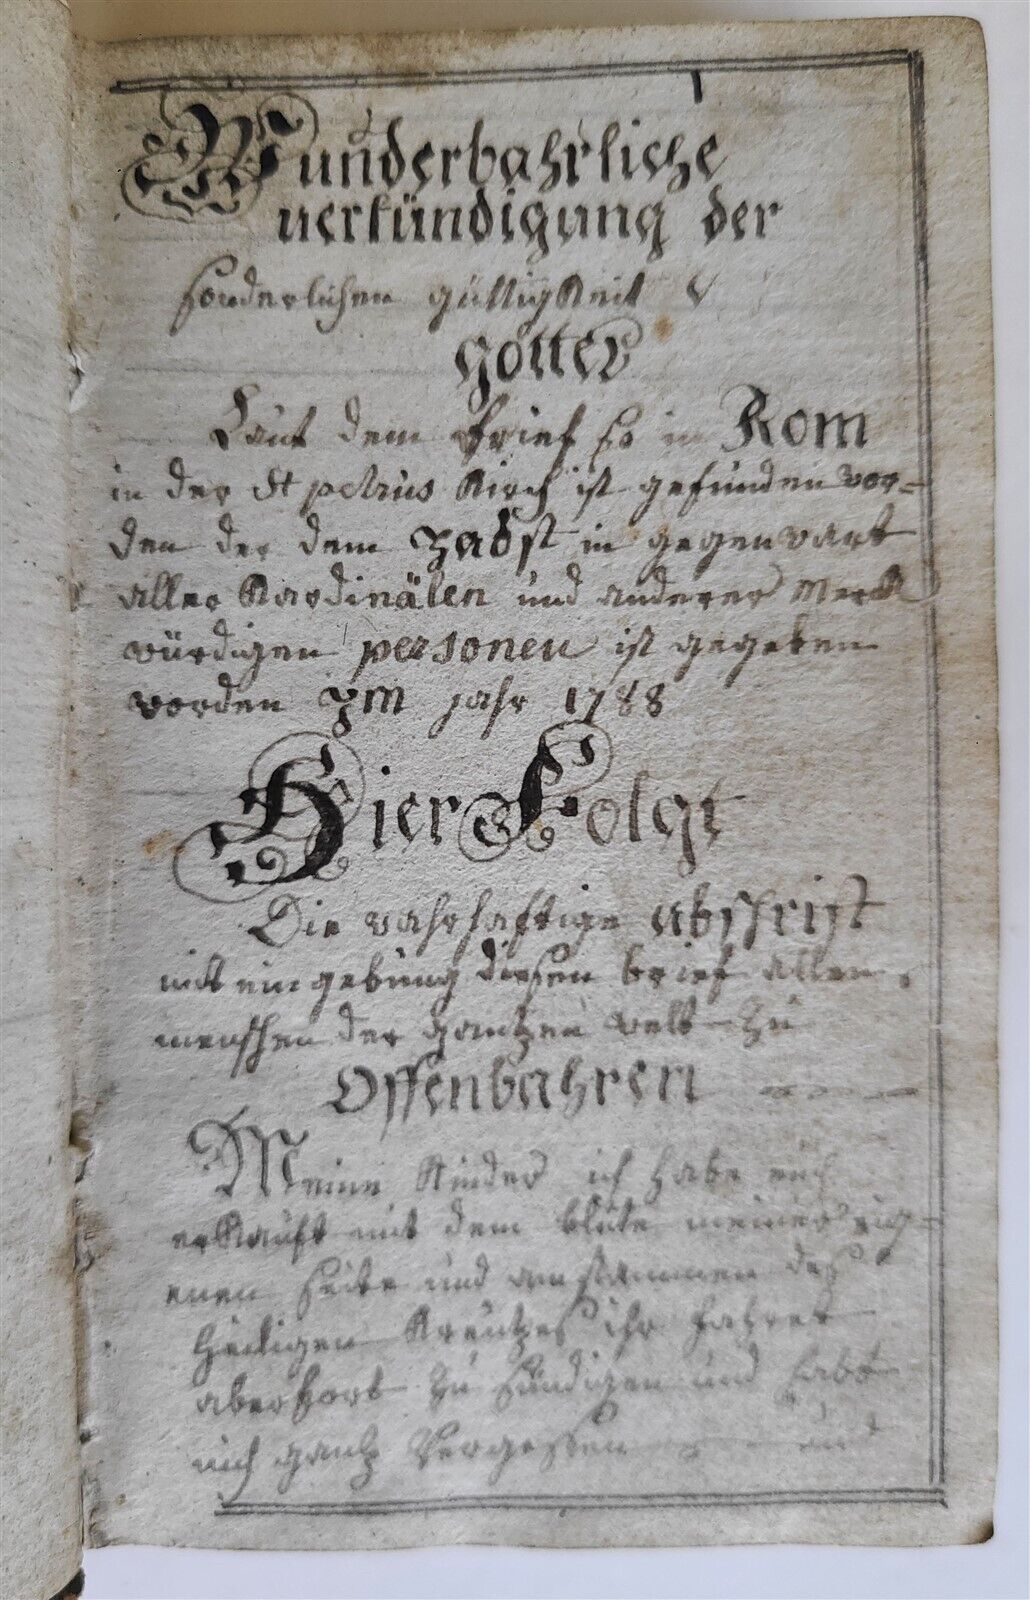 Wunderbahrliche
verkündigung der
sonderlichen gültigkeit
Gottes
Laut dem brief so in Rom
in der St petrus Kirch ist gefunden wor=
den der dem Pabst in gegenwart
aller Kardinälen und anderer Merck
würdigen personen ist gegeben
worden Im jahr 1788
Hier Folgt
Die wahrhaftige abschrift
mit eingebung diesen brief allen
menschen der gantzen welt zu
Offenbahren
Meine Kinder ich habe euch
erkauft mit dem blute meiner eig=
enen seite und am stammen des
Heiligen Kreutzes ihr fahret
aber fort zu sündigen und habt
mich gantz Vergessen